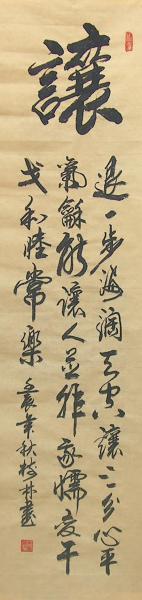 讓
退一步海闊天空讓三分心平
氣龢能讓人並非我懦干
戈和睦常樂
辰年秋林書